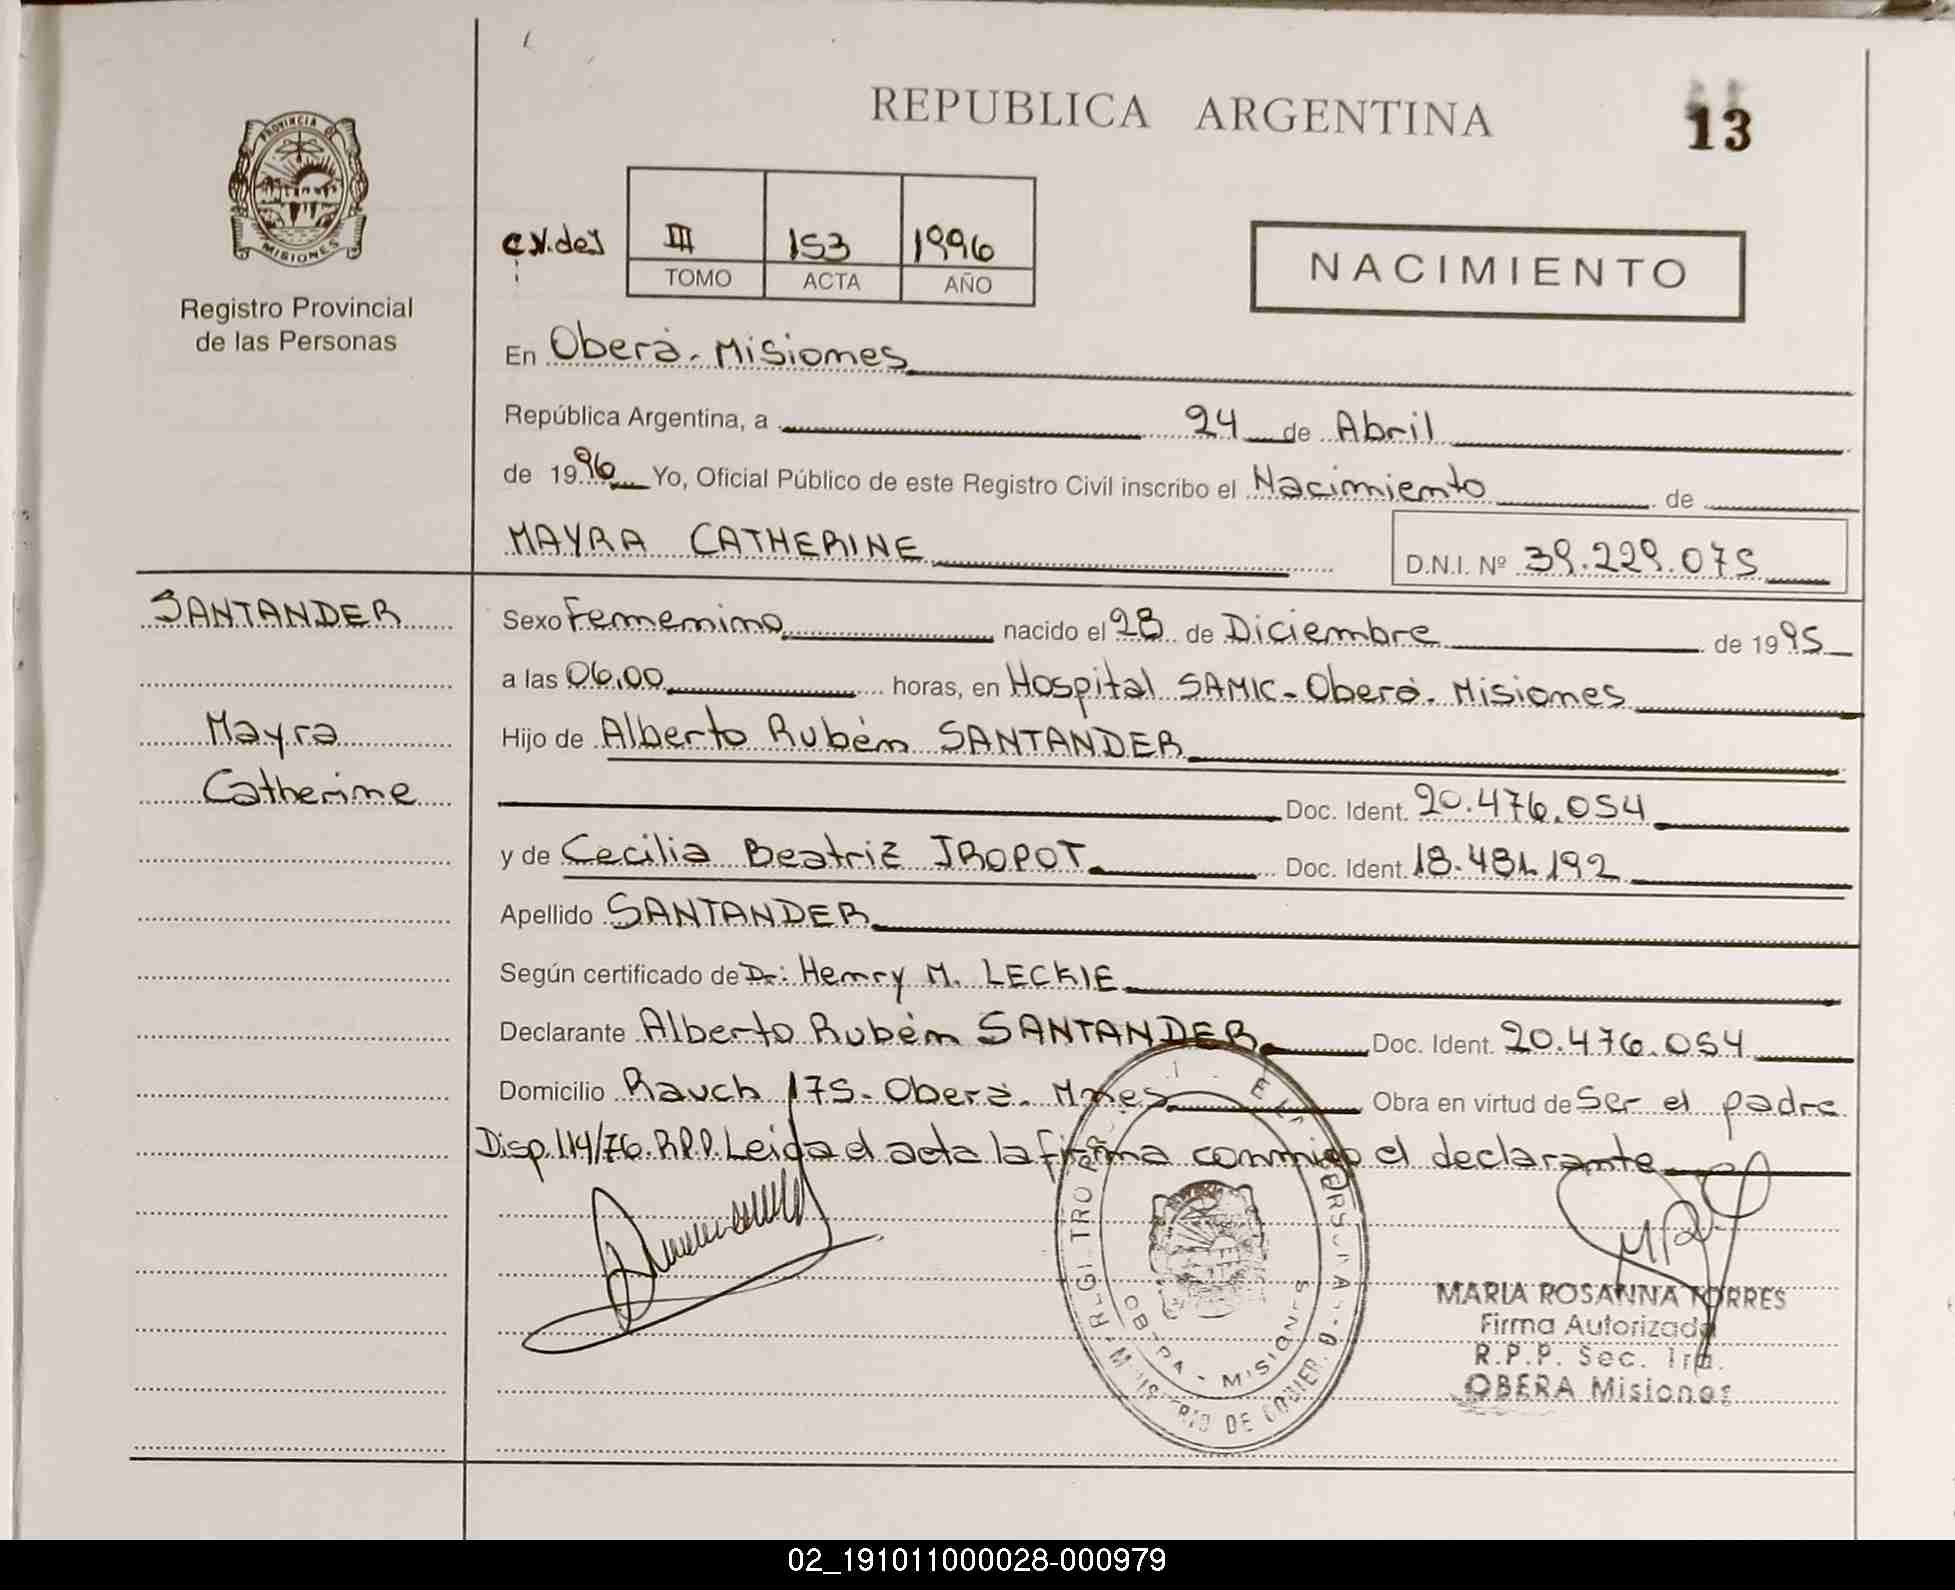 REPUBLICA ARGENTINA
13
PROVINCIA DE
MISIONES
Registro Provincial
de las Personas
III 153 1996
TOMO ACTA AÑO
NACIMIENTO
En Oberá. Misiones
República Argentina, a 24 de Abril
de 1996 Yo, Oficial Público de este Registro Civil inscribo el Nacimiento de
MAYRA CATHERINE D.N.I. Nº 39.229.075
SANTANDER
Mayra
Catherine
Sexo Femenino nacido el 28 de Diciembre de 1995
a las 06,00 horas, en Hospital SAMIC-Oberá. Misiones
Hijo de Alberto Rubén SANTANDER
Doc. Ident. 20.476.054
y de Cecilia Beatriz IROPOT Doc. Ident. 18.481.192
Apellido SANTANDER
Según certificado de Dr: Henry M. LECKIE
Declarante Alberto Rubén SANTANDER Doc. Ident. 20.476.054
Domicilio Rauch 175-Oberá. Mnes Obra en virtud de Ser el padre
Disp. 114/76.R.P.P. Leida el acta la firma conmigo el declarante
OBERA - MISIONES
MARIA ROSANNA TORRES
Firma Autorizada
R.P.P. Sec. 1ra.
OBERA Misiones
02_191011000028-000979